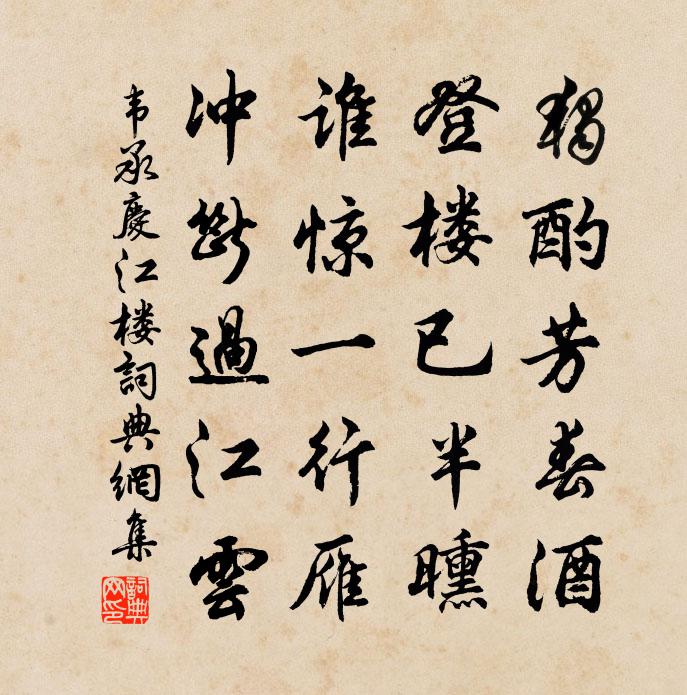 独酌芳春酒
登楼已半曛
谁惊一行雁
冲断过江雲
韦承慶江楼詞典網集
詞典网印